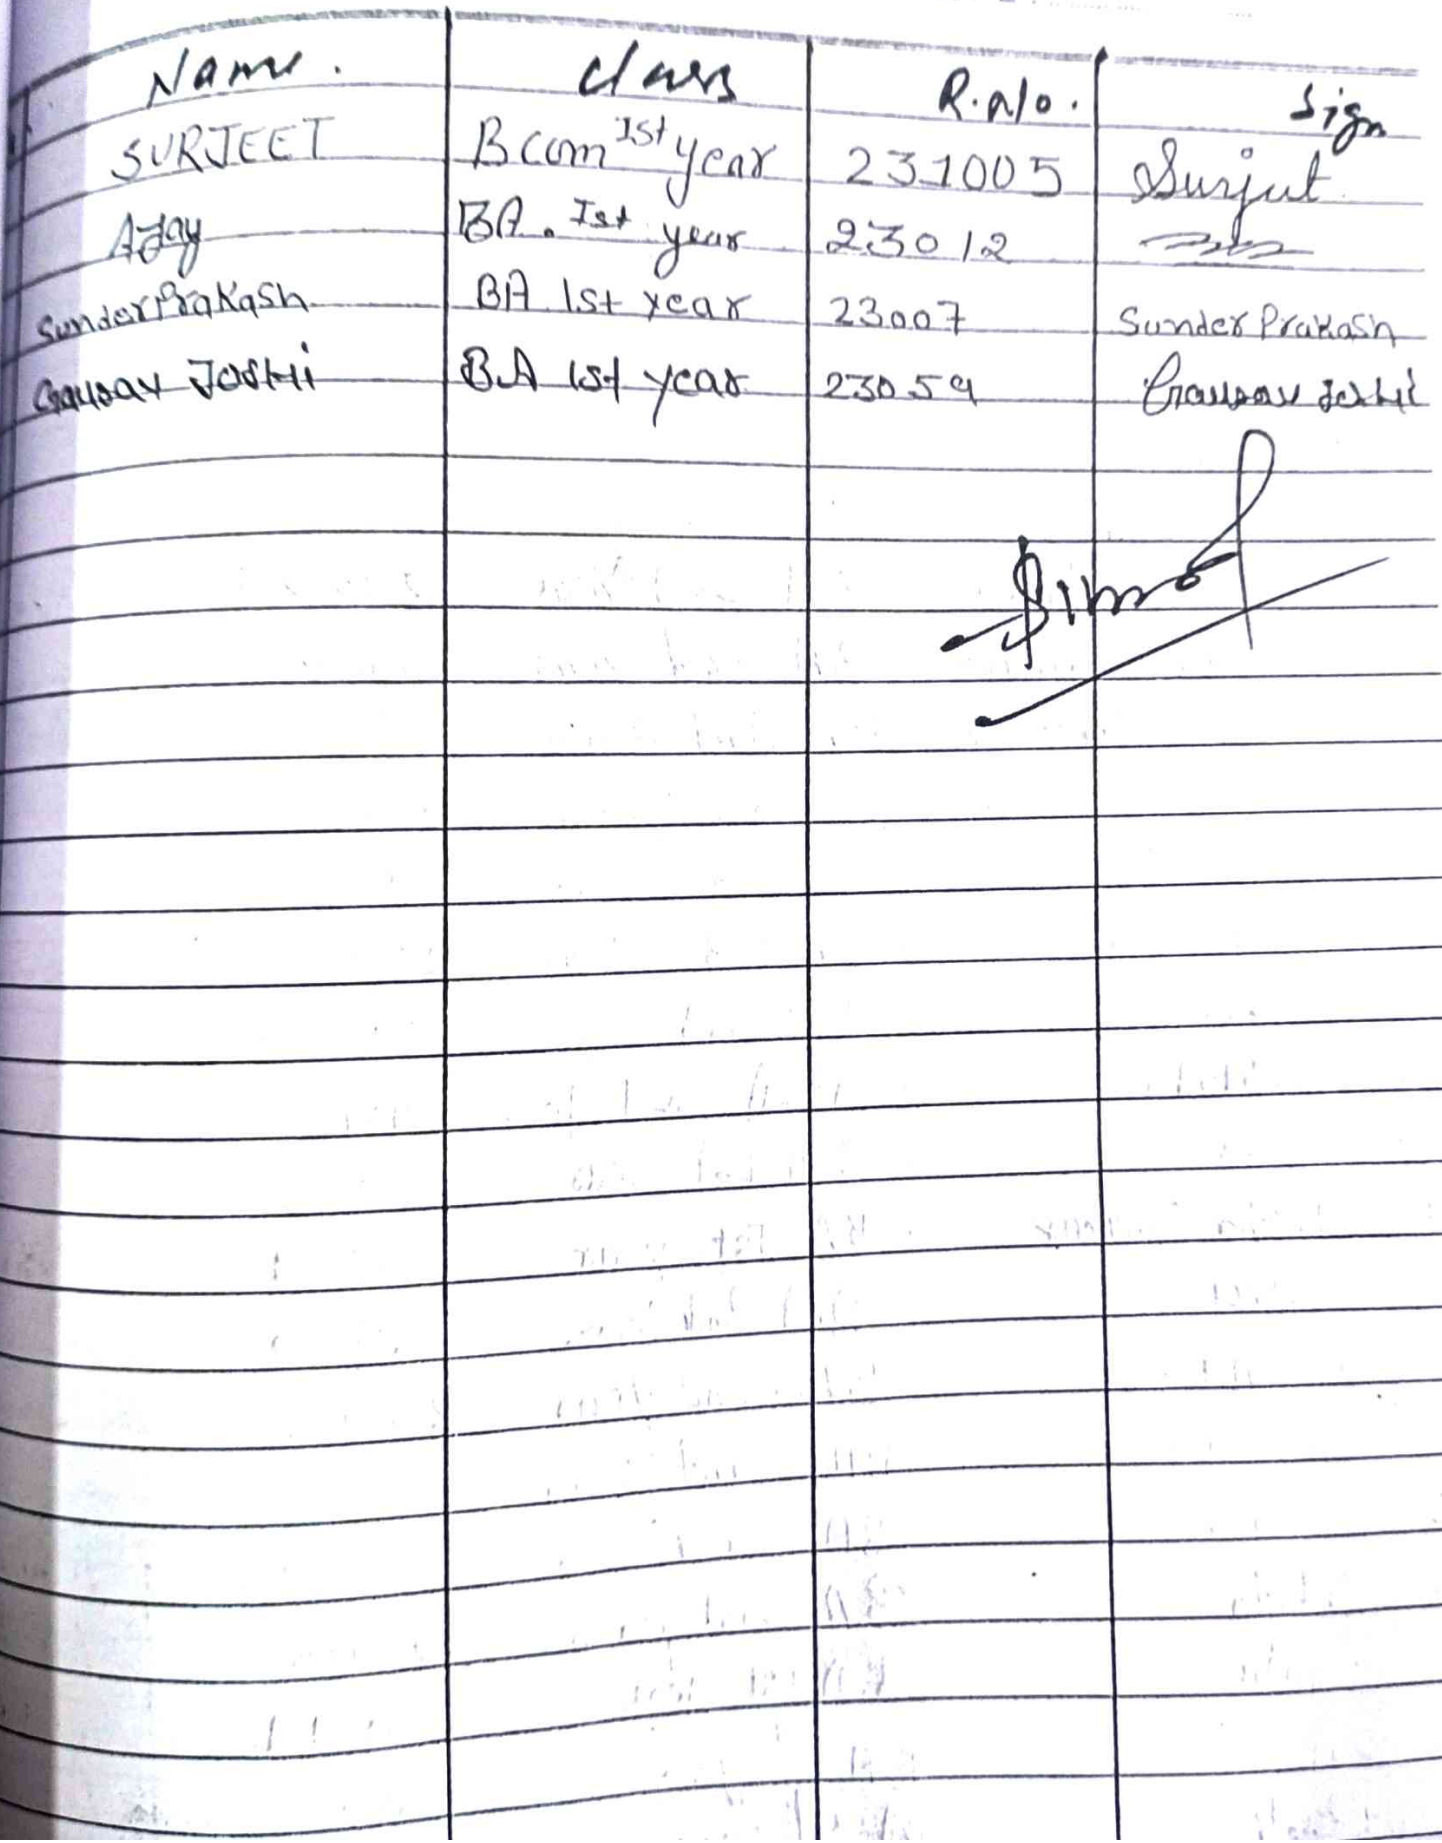 Name. Class R.No. Sign
SURJEET Bcom Ist year 231005 Surjeet
AJay BA. Ist year 23012
Sunder Prakash BA 1st year 23007 Sunder Prakash
Gaurav JOSHI BA 1st year 23059 Gaurav Joshi